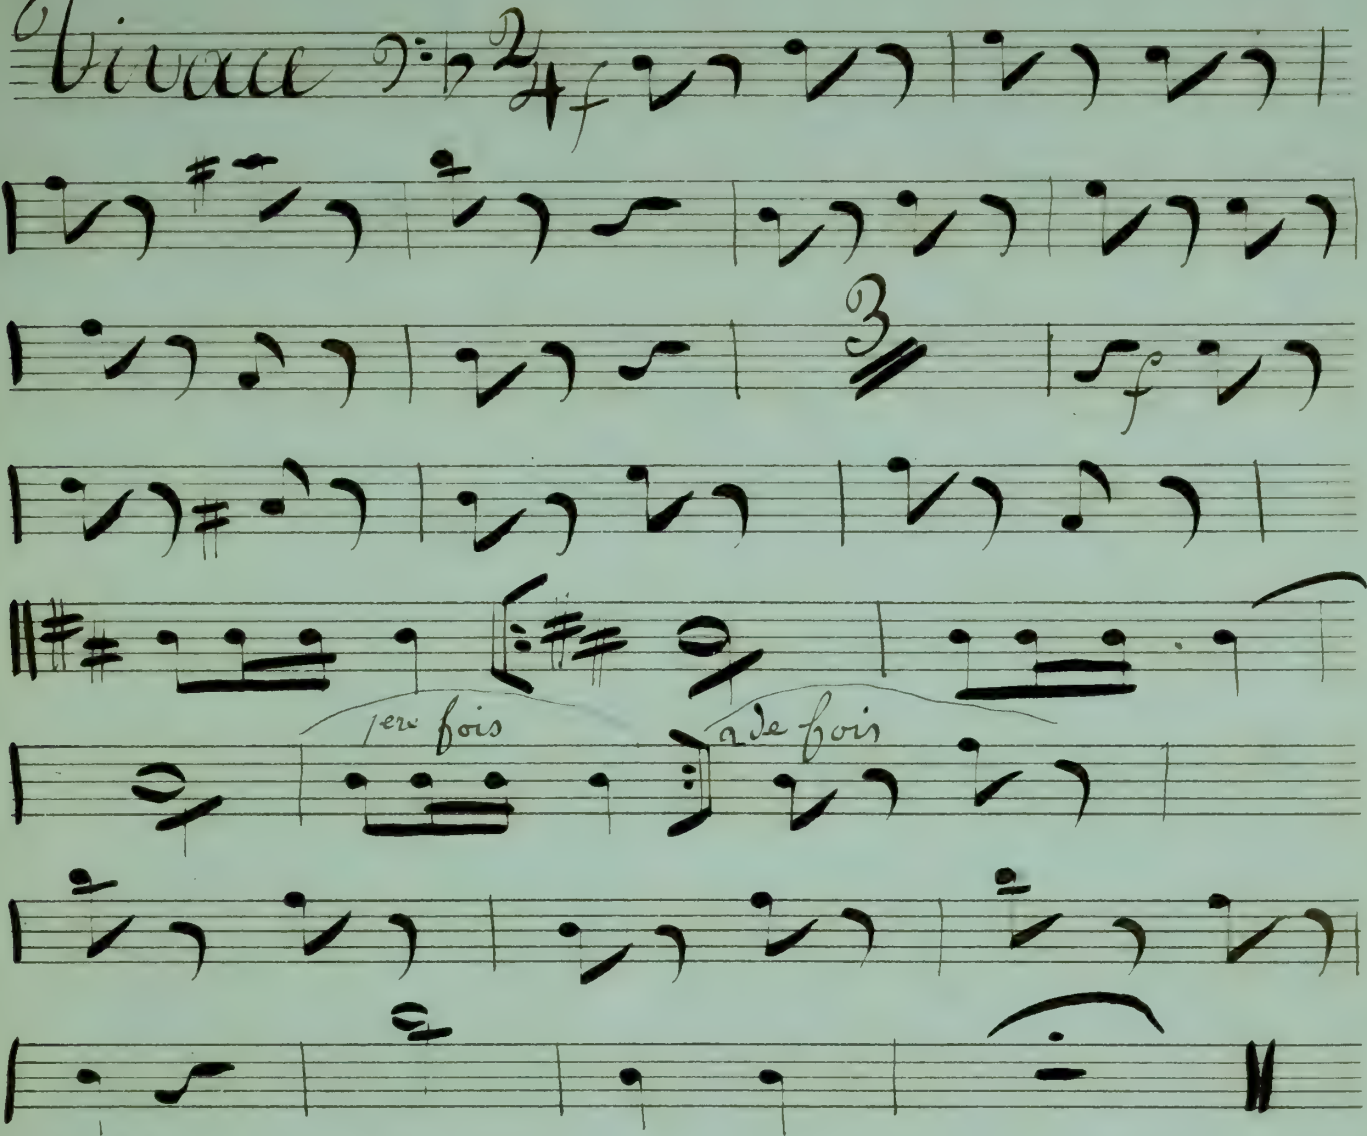 Vivace 2 4 f
3
f
1ere fois 2de fois